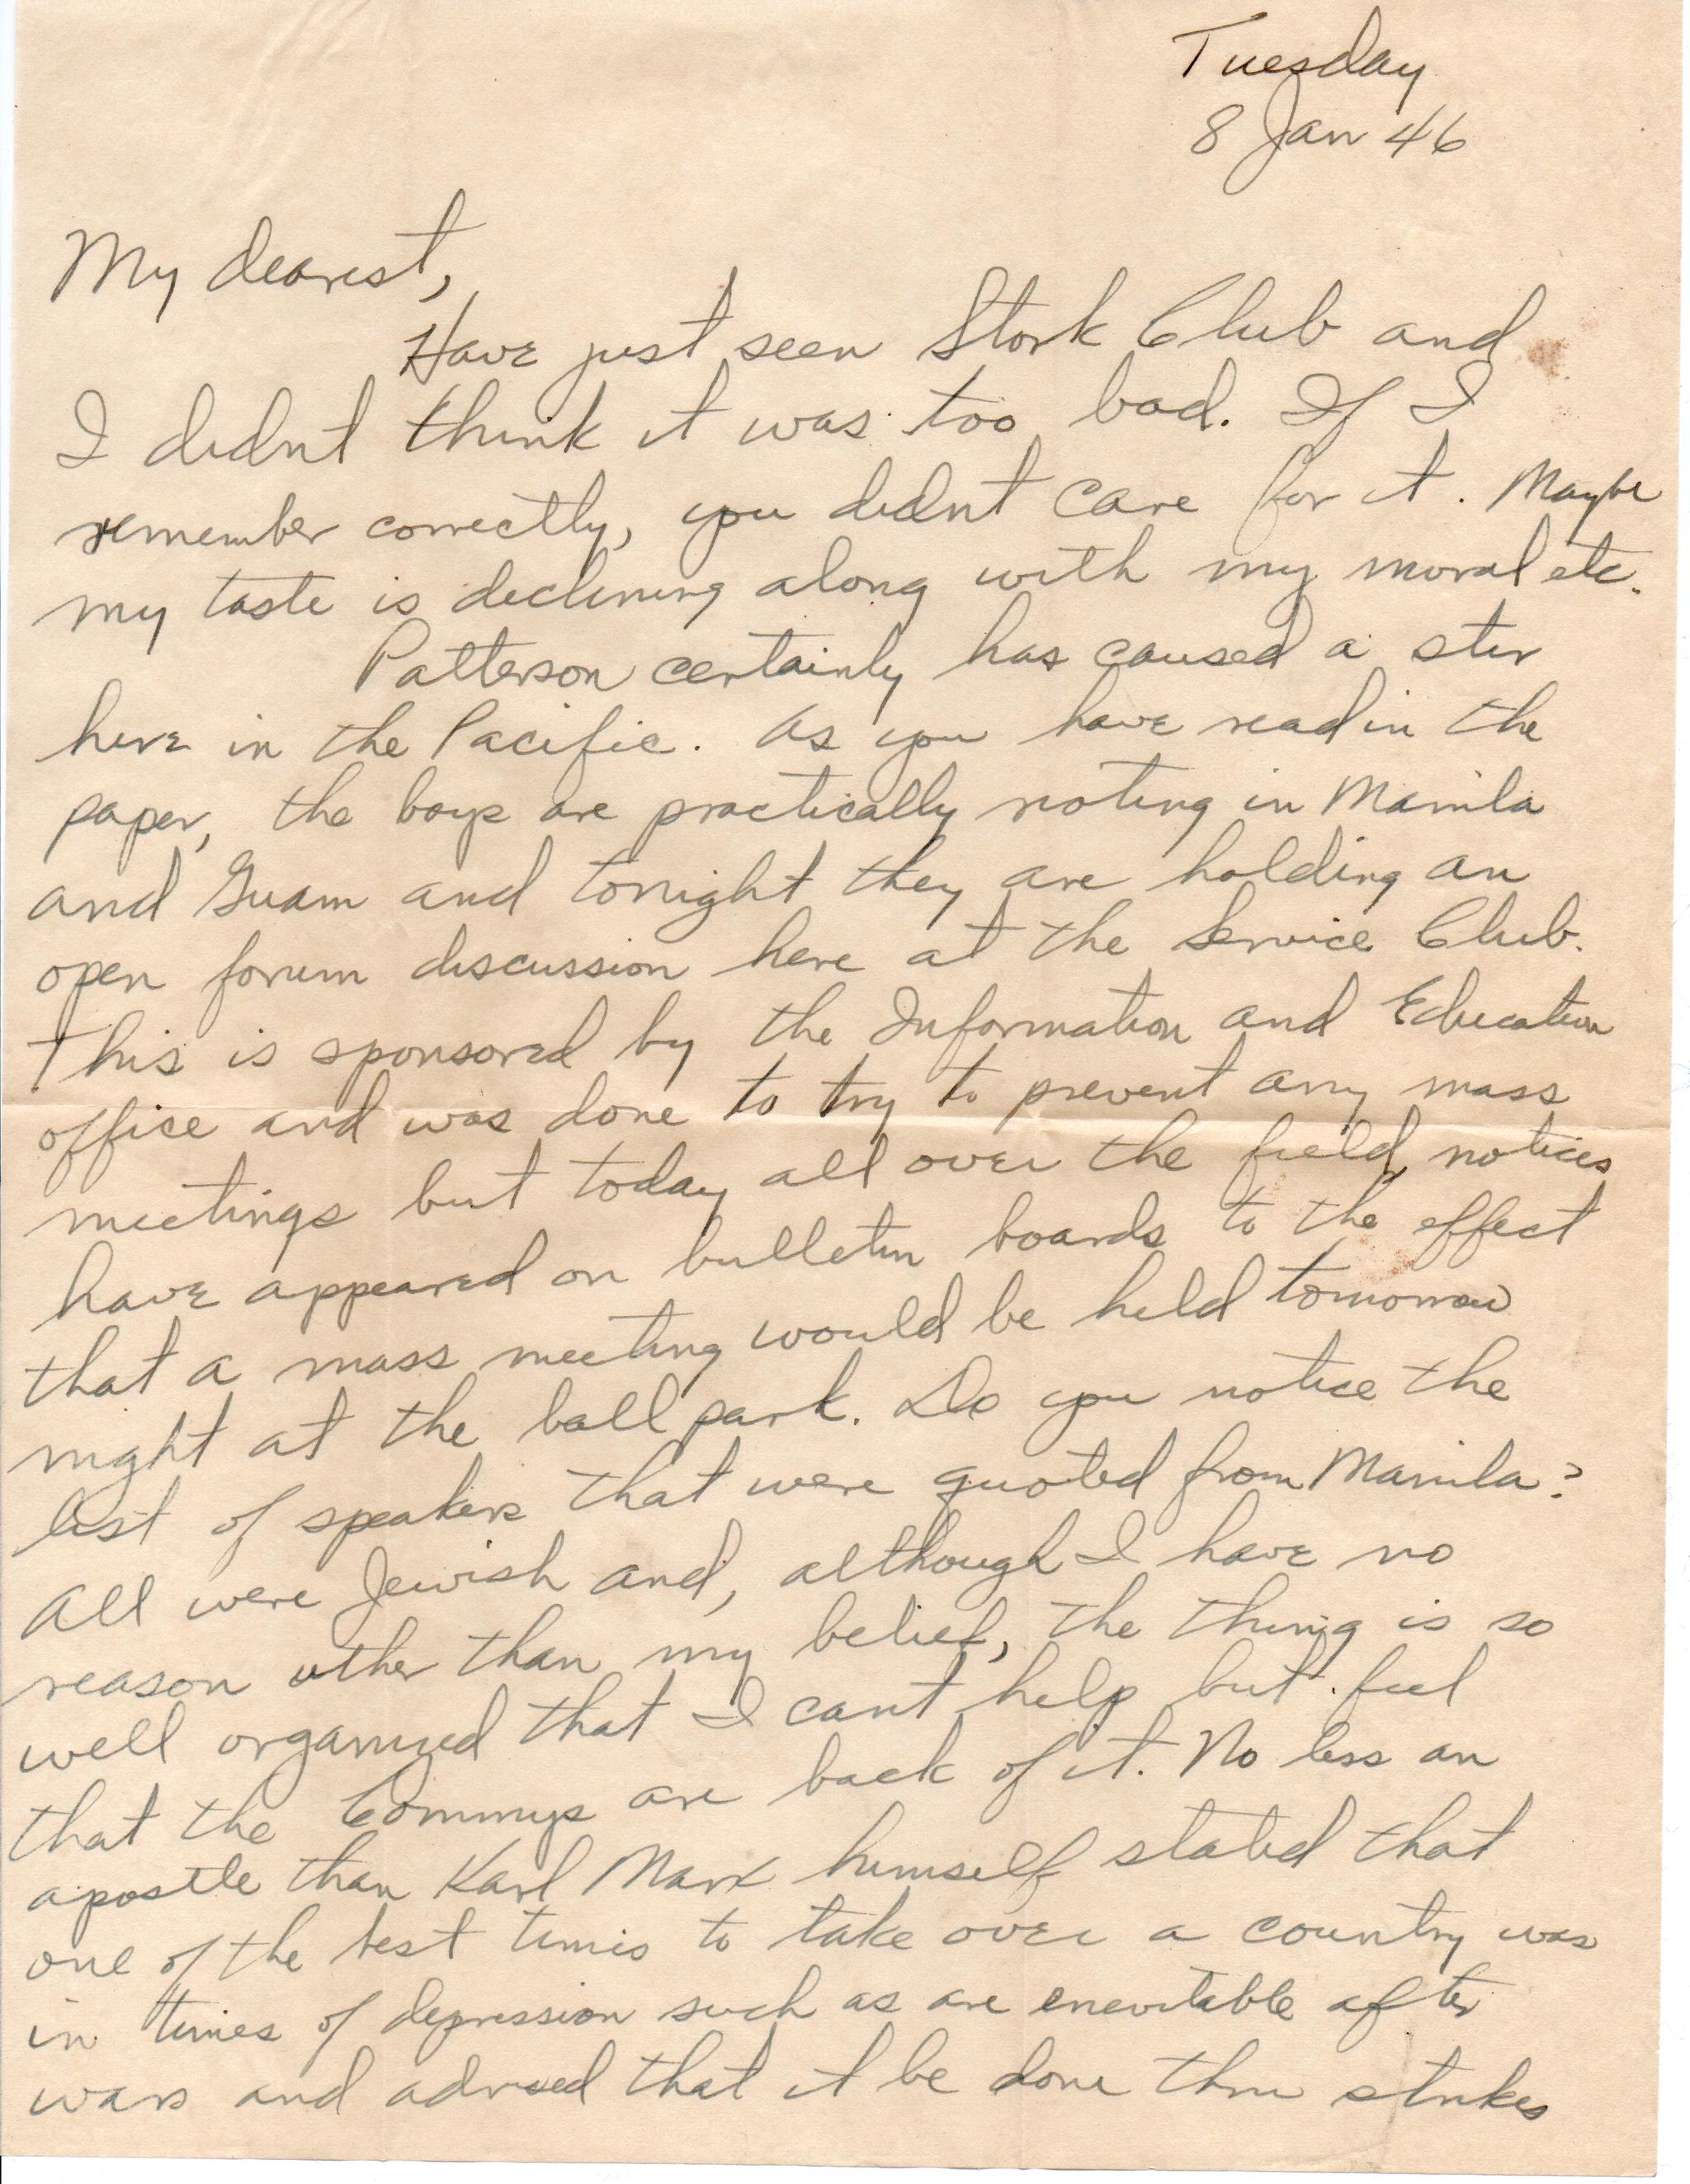 Tuesday
8 Jan 46
My dearest,
Have just seen Stork Club and
I didnt think it was too bad. If I
remember correctly, you didnt care for it. Maybe
my taste is declining along with my moral etc.
Patterson certainly has caused a stir
here in the Pacific. As you have read in the
paper, the boys are practically rioting in Manila
and Guam and tonight they are holding an
open forum discussion here at the Service Club.
This is sponsored by the Information and Education
office and was done to try to prevent any mass
meetings but today all over the field, notices
have appeared on bulletin boards to the effect
that a mass meeting would be held tomorrow
night at the ball park. Do you notice the
list of speakers that were quoted from Manila?
All were Jewish and, although I have no
reason other than my belief, the thing is so
well organized that I cant help but feel
that the Commys are back of it. No less an
apostle than Karl Marx himself stated that
one of the best times to take over a country was
in times of depression such as are enevitable after
wars and advised that it be done thru strikes